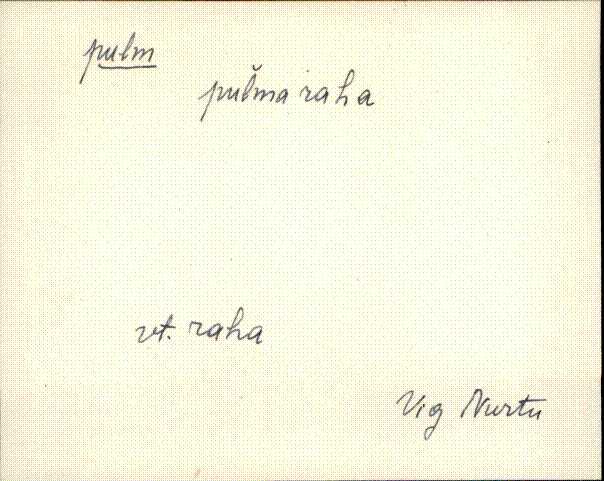 pulm
pul̆ma raha
vt. raha
Vig Nurtu